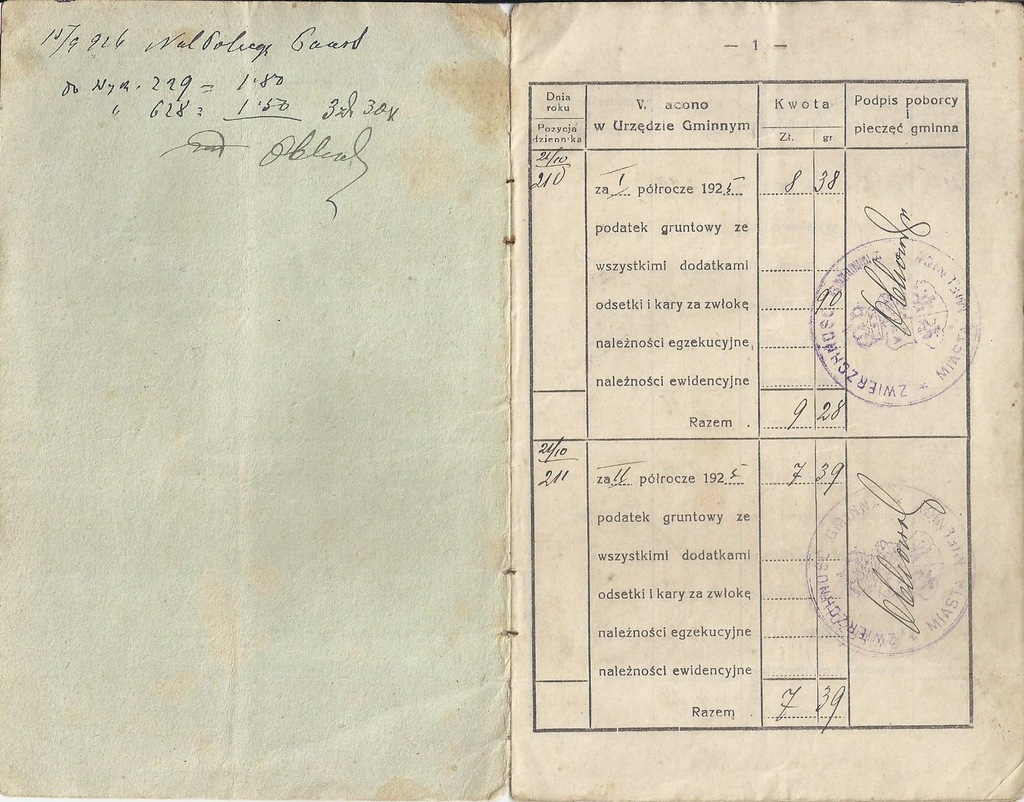 15/9 926
229 = 1.80
" 628 = 1.50 3 zł 30
— 1 —
Dnia roku
Pozycja dziennika
W acono
w Urzędzie Gminnym
Kwota
Zł. gr
Podpis poborcy
i
pieczęć gminna
21/10
210
za I półrocze 1925 8 38
podatek gruntowy ze
wszystkimi dodatkami
odsetki i kary za zwłokę 90
należności egzekucyjne
należności ewidencyjne
Razem . 9 28
ZWIERZCHNOŚĆ GMINNA
MIASTA
21/10
211
za II półrocze 1925 7 39
podatek gruntowy ze
wszystkimi dodatkami
odsetki i kary za zwłokę
należności egzekucyjne
należności ewidencyjne
Razem . 7 39
ZWIERZCHNOŚĆ GMINNA
MIASTA